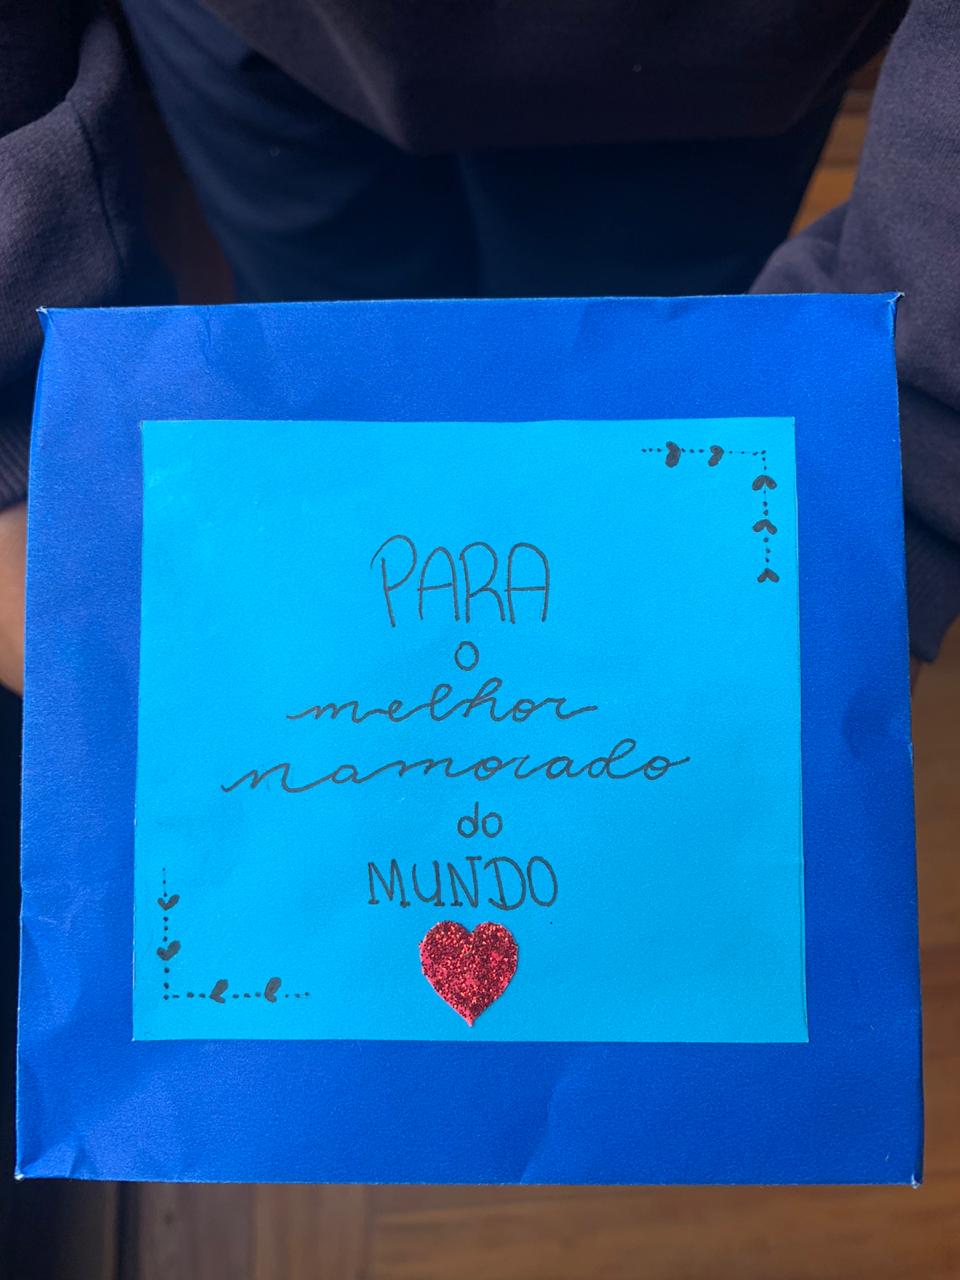 PARA
o
melhor
namorado
do
MUNDO